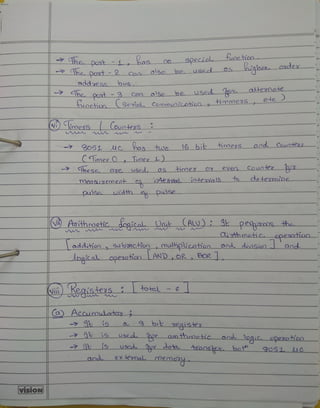 → The port - 1, has no special function.
→ The port - 2 can also be used as higher order
address bus.
→ The port - 3 can also be used for alternate
function (serial communication, timmers, etc)
vi) Timers / Counters :
→ 8051 μc has two 16 bit timers and counter
(Timer 0, Timer 1)
→ These are used as timer or even counter for
measurement of intervals to determine
pulse width of pulse
vii) Arithmetic logical Unit (ALU) : It performs the
arithmetic operation
[addition, subraction, multiplication and division] and
logical operation [AND, OR, XOR].
viii) Registers : [total - 6]
a) Accumulator :
→ It is a 8 bit register
→ It is used for arithmetic and logic operation
→ It is used for data transfer betn 8051 μc
and external memory.
vision